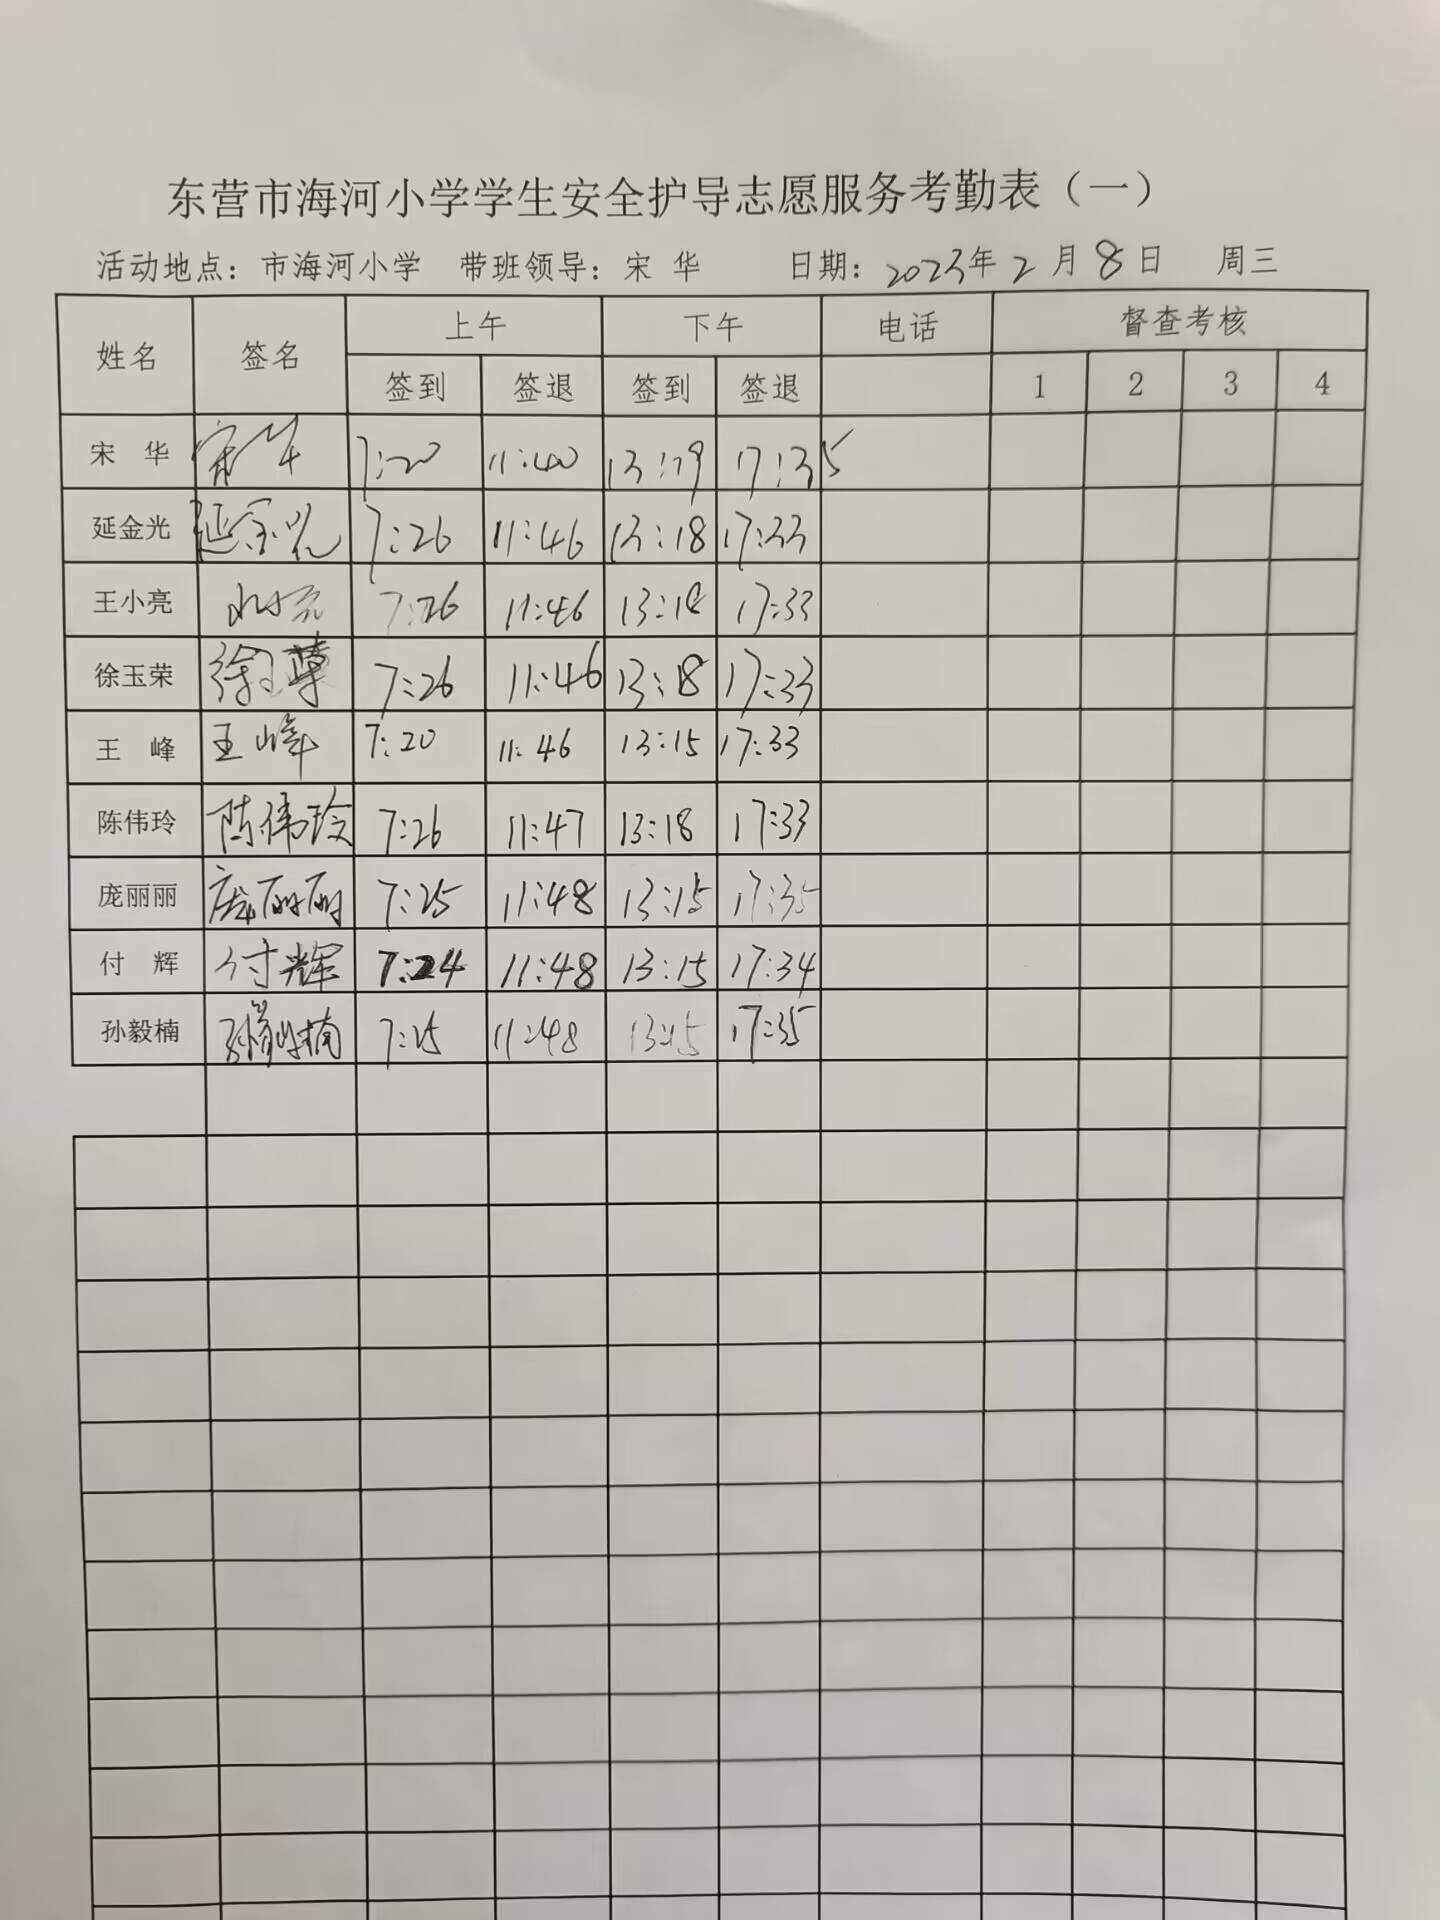 东营市海河小学学生安全护导志愿服务考勤表（一）
活动地点：市海河小学 带班领导：宋 华 日期：2023年2月8日 周三
姓名 签名 上午 下午 电话 督查考核
签到 签退 签到 签退 1 2 3 4
宋 华 宋华 7:20 11:40 13:19 17:35
延金光 延金光 7:26 11:46 13:18 17:33
王小亮 王小亮 7:26 11:46 13:18 17:33
徐玉荣 徐玉荣 7:26 11:46 13:18 17:33
王 峰 王峰 7:20 11:46 13:15 17:33
陈伟玲 陈伟玲 7:26 11:47 13:18 17:33
庞丽丽 庞丽丽 7:25 11:48 13:15 17:35
付 辉 付辉 7:24 11:48 13:15 17:34
孙毅楠 孙毅楠 7:25 11:48 13:15 17:35